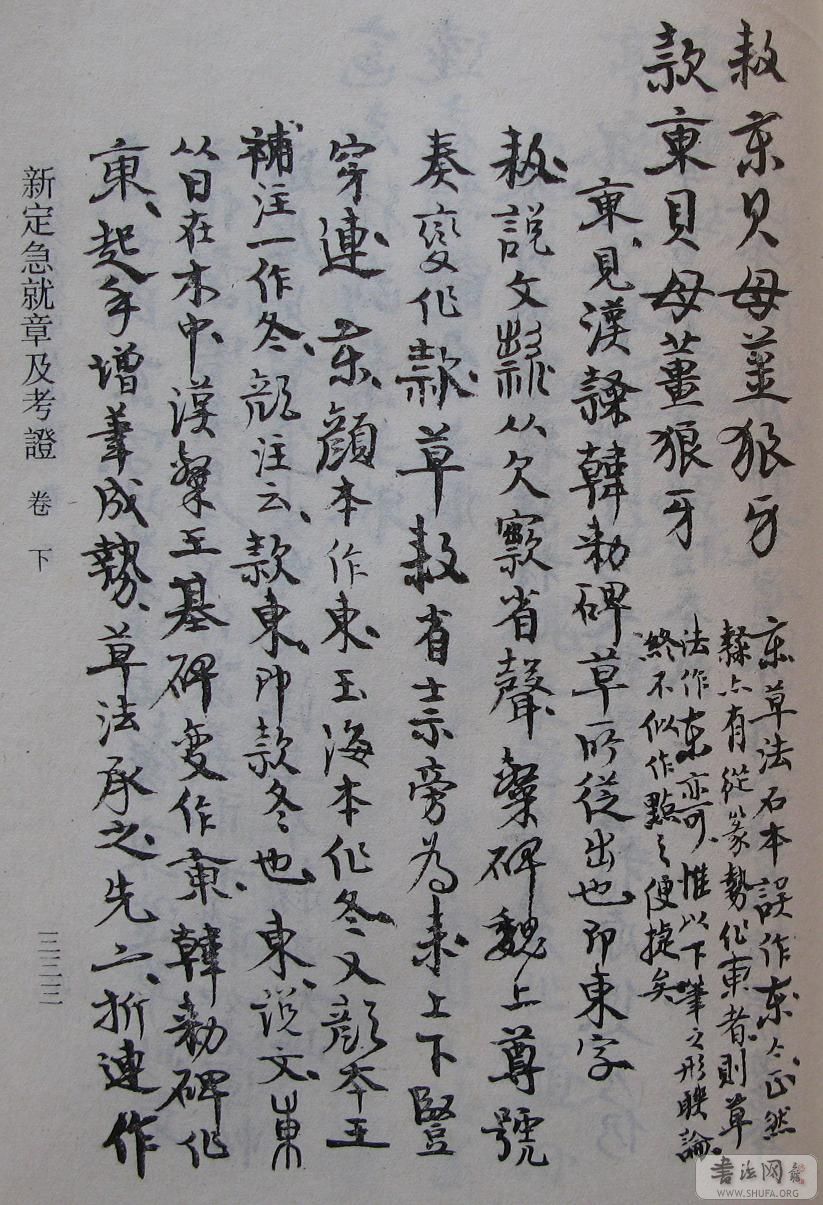 款东贝母薑狼牙
款東貝母薑狼牙
东草法石本誤作东今正然
隸亦有從篆勢作東者則草
法作东亦可惟以下筆之形時論
終不似作點之便捷矣
東見漢隸韓勑碑草所從出也即東字
款說文从欠省聲隸碑魏上尊號
奏變作款草款省士示旁為上下豎
穿連东顏本作東玉海本作冬又顏本王
補注一作冬顏注云款東即款冬也東說文東
从日在木中漢隸王基碑變作東韓勑碑作
東起手增筆成勢草法承之先二折連作
新定急就章及考證 卷下
三三三
書法网
WWW.SHUFA.ORG